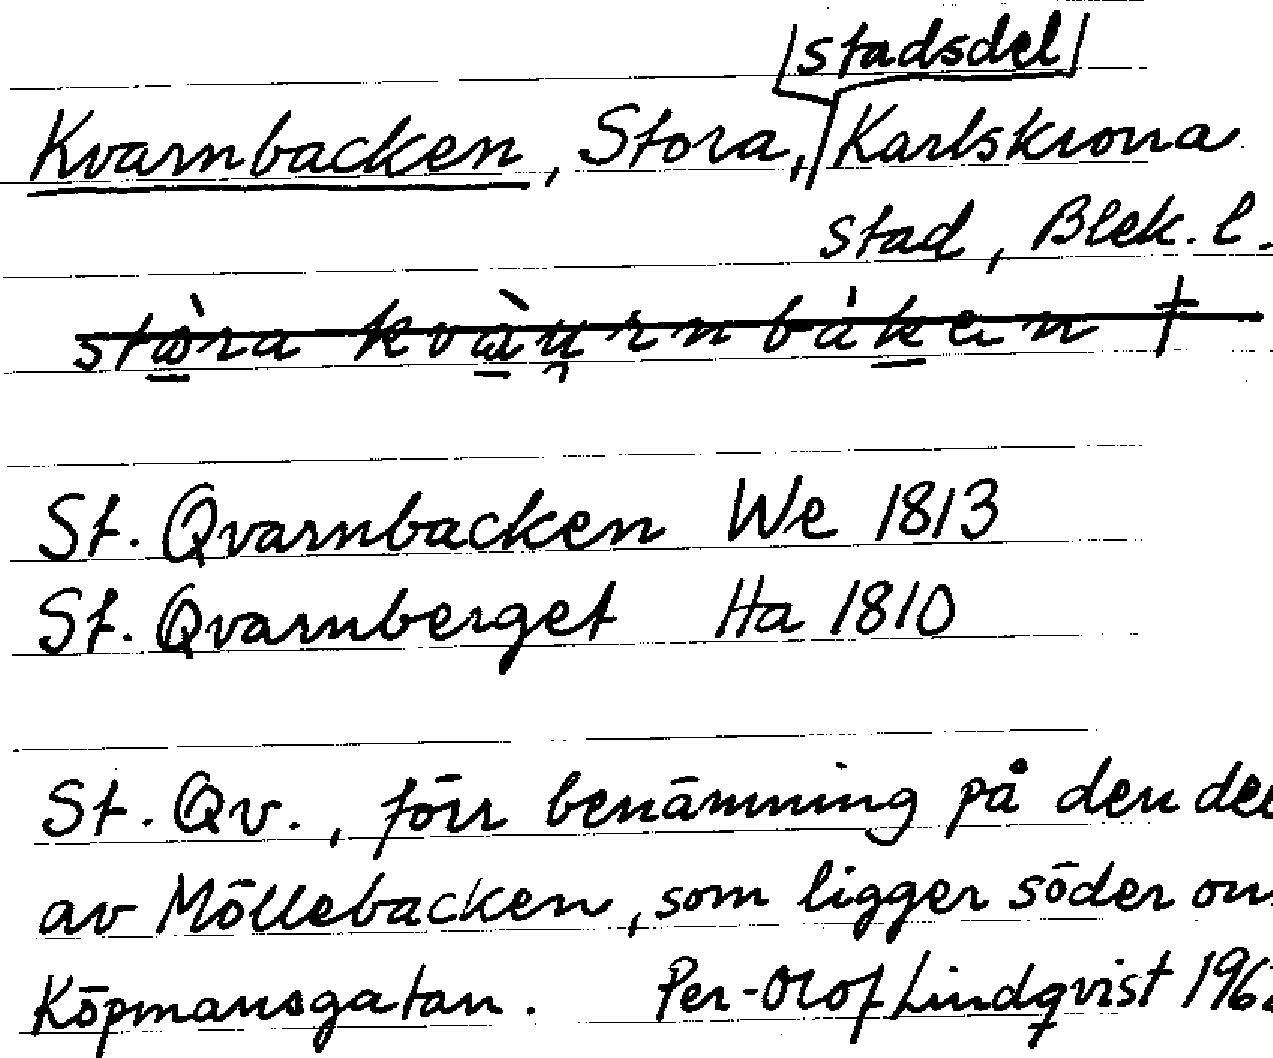 stadsdel
Kvarnbacken, Stora, Karlskrona
stad, Blek. l.
St. Qvarnbacken We 1813
St. Qvarnberget Ha 1810
St. Qv., förr benämning på den del
av Möllebacken, som ligger söder om
Köpmansgatan. Per-Olof Lindqvist